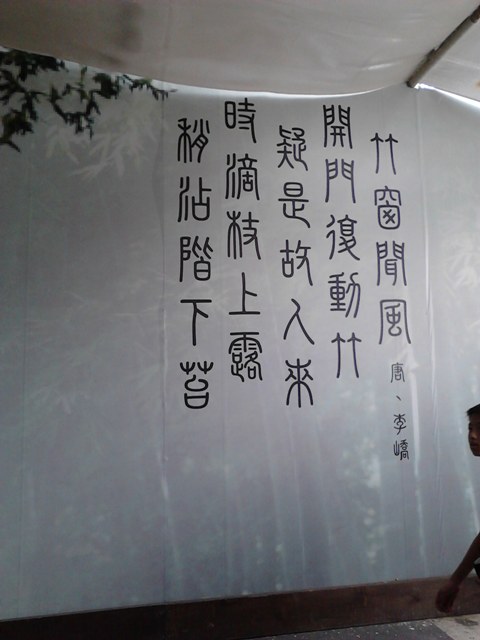 竹窗聞風
唐、李嶠
開門復動竹
疑是故人來
時滴枝上露
稍沾階下苔